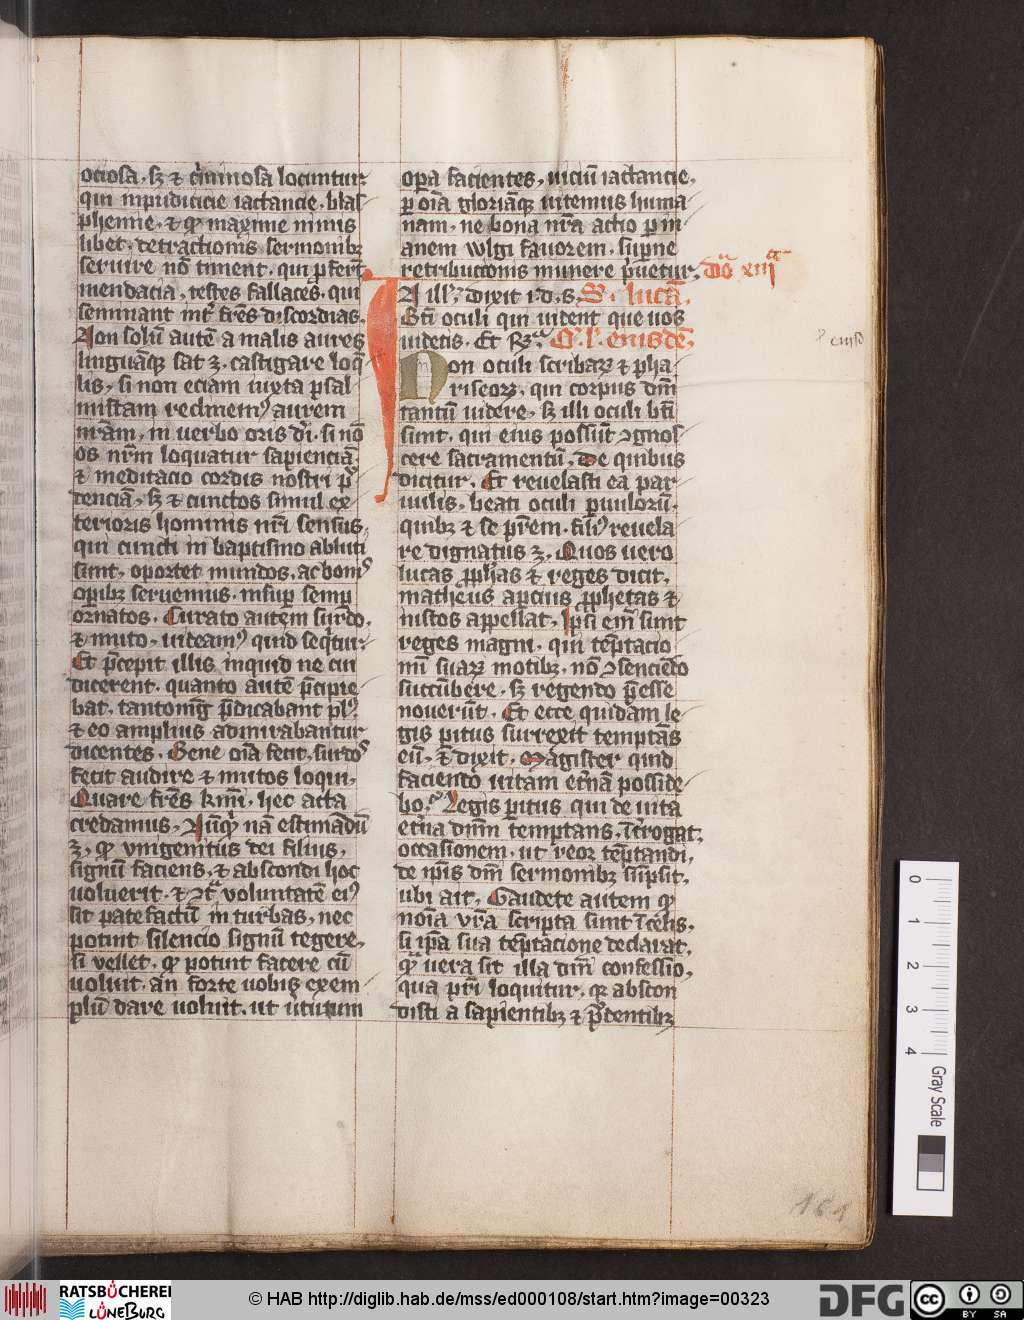 ociosa, sꝫ ⁊ c̾minosa locuntur
qui inpudicicie iactancie, blas
phemie, ⁊ qͥ maxime nimis
libet, detractionis sermonibꝫ
seruire nō timent, qui pferūt
mendacia, testes fallaces, qui
seminant int̾ fr̄es discordias,
Non solū autē a malis aures
linguāqꝫ sat ꝫ, castigare loq̄
lis, si non eciam iuxta psal
mistam reclinemꝰ aurem
nr̄am, in uerbo oris dn̄i, si nō
os nr̄m loquatur sapienciā,
⁊ meditacio cordis nostri p̄
denciā, sꝫ ⁊ cunctos simul ex
terioris hominis nr̄i sensus,
qui cuncti in baptismo abluti
sunt, oportet mundos, ac bonis
op̄ibꝫ seruemus, insup semp
ornatos. Curato autem surdo,
⁊ muto, uideamꝰ quid seq̄tur
Et p̄cepit illis inquid ne cui
dicerent, quanto autē p̄cipie
bat, tantomg̾ p̄dicabant plꝰ
⁊ eo amplius admirabantur
dicentes, Bene oīa fecit, surdos
fecit audire ⁊ mutos loqui,
Quare fr̄es km̄i, hec acta
credamus, Nūqͥ nā estimādū
ꝫ, qͥ vnigenitus dei filius,
signū faciens, ⁊ abscondi hoc
uoluerit, ⁊ ꝯtͣ voluntatē eiꝰ
sit patefactū in turbas, nec
potuit silencio signū tegere,
si vellet, qͥ potuit facere cū
uoluit, an forte uobis exem
plū dare uoluit, ut uirtutum
opa facientes, uiciū iactancie,
p oīa gloriāqꝫ uitemus huma
nam, ne bona nr̄a actio p in
anem wlgi fauorem, supne
retribucionis munere p̄uetur,
Dͦͣ xiiiͣ
In ill̾. dixit i. d. s. S. lucā.
Bt̄i oculi qui uident que uos
uidetis. Et Rͣ. Om̾. l. eiusdē.
Non oculi scribaꝝ ⁊ pha
riseoꝝ, qui corpus dn̄i
tantū uidere, sꝫ illi oculi bt̄i
sunt, qui eius possūt ꝯgnos
cere sacramentū, De quibus
dicitur, Et reuelasti ea par
uulis, beati oculi puuloꝝ,
quibꝫ ⁊ se pr̄em, filiꝰ reuela
re dignatus ꝫ, Quos uero
lucas p̱phas ⁊ reges dicit,
matheus apcius p̱phetas ⁊
iustos appellat, Ip̄si em̄ sunt
reges magni, qui tēptacio
nū suaꝝ motibꝫ, nō ꝯsenciēdo
succūbere, sꝫ regendo p̄esse
nouerūt, Et ecce quidam le
gis pitus surrexit temptās
eū, ⁊ dixit, Magister quid
faciendo uitam et̾nā posside
bo? Legis pitus qui de uita
et̾na dn̄m temptans, īt̾rogat,
occasionem, ut reor tēptandi,
de ip̄is dn̄i sermonibꝫ sūpsit,
ubi ait, Gaudete autem qͥ
noīa vr̄a scripta sunt ī celis,
si ip̄a sua tēptacione declarat,
qͣ uera sit illa dn̄i confessio,
qua pr̄i loquitur, qͥ abscon
disti a sapientibꝫ ⁊ p̄dentibꝫ
161
0 1 2 3 4 Gray Scale
RATSBÜCHEREI
LÜNEBURG
© HAB http://diglib.hab.de/mss/ed000108/start.htm?image=00323
DFG
cc BY SA